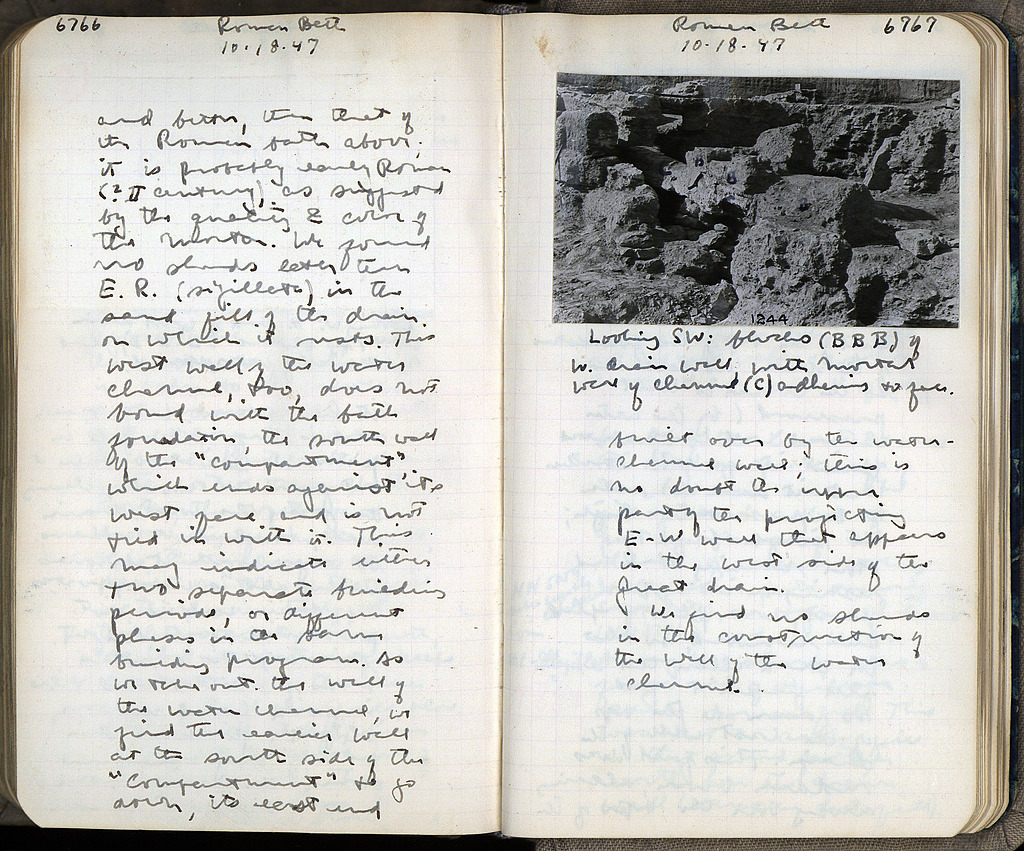 6766
Roman Bath
10.18.47
and firm, than that of
the Roman bath above;
it is probably early Roman
(? II century), as suggested
by the quality & color of
the mortar. We found
no sherds later than
E. R. (sigillata) in the
sand fill of the drain
on which it rests. This
west wall of the water
channel, too, does not
bond with the bath
foundation, the south wall
of the "compartment",
which ends against its
west face and is not
tied in with it. This
may indicate either
two separate building
periods, or different
phases in the same
building program. As
we take out the wall of
the water channel, we
find the earlier wall
at the south side of the
"compartment" to go
down, its east end
Roman Bath
6767
10.18.47
B
1244
Looking SW: blocks (B B B) of
W. drain wall, with mortar
wall of channel (C) adhering to face.
built over by the water-
channel wall; this is
no doubt the upper
part of the projecting
E-W wall that appears
in the west side of the
great drain.
We find no sherds
in the construction of
the wall of the water
channel.